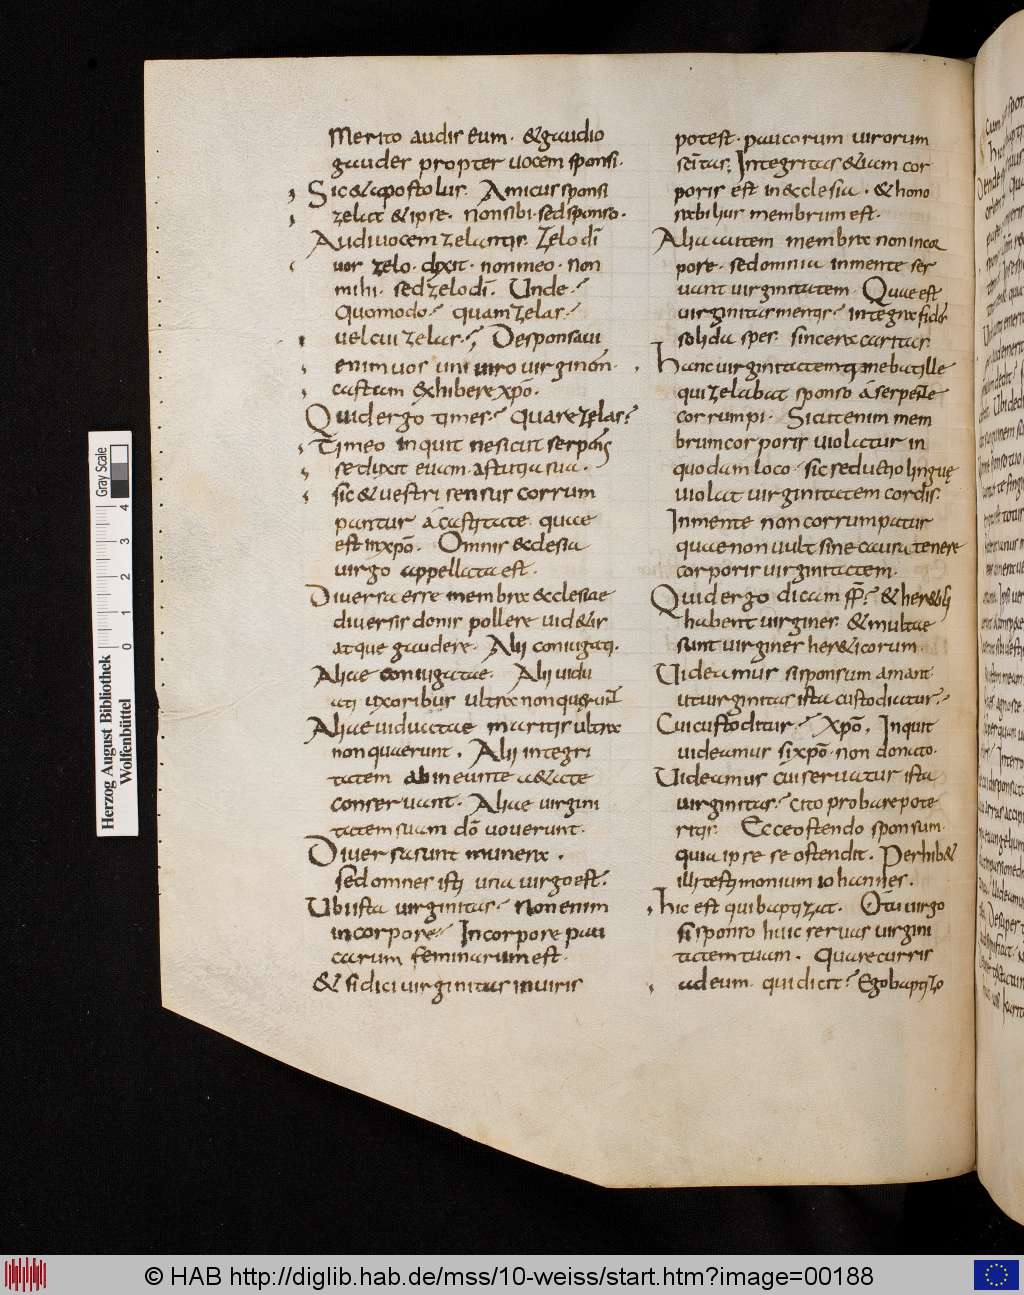 Merito audis eum· & gaudio
gaudes propter uocem sponsi·
Sic & apostolus· Amicus sponsi
zelat & ipse· non sibi· sed sponso·
Audi uocem zelantis· Zelo dī
uos zelo· dixit· non meo· non
mihi· sed zelo dī· Unde·
Quomodo· quam zelas·
uel cui zelas· Desponsaui
enim uos uni uiro uirginem·
castam exhibere xpō·
Quid ergo times· quare zelas?
Timeo inquit ne sicut serpens
seduxit euam· astutia sua·
sic & uestri sensus corrum
pantur a castitate· quae
est in xpō· Omnis ecclesia
uirgo appellata est·
Diuersa esse membra ecclesiae
diuersis donis pollere uid&is
atque gaudere· Alii coniugati·
Aliae coniugatae· Alii uidu
ati uxoribus ultra non querunt
Aliae uiduatae maritis ultra
non quaerunt· Alii integri
tatem ab ineunte a&ate
conseruant· Aliae uirgini
tatem suam dō uouerunt·
Diuersa sunt munera·
sed omnes isti una uirgo est·
Ubi ista uirginitas· Non enim
in corpore· In corpore pau
carum feminarum est·
& si dici uirginitas in uiris
potest· paucorum uirorum
scītas· Integritas &iam cor
poris est in ecclesia· & hono
rabilius membrum est·
Alia autem membra non in cor
pore· sed omnia in mente ser
uant uirginitatem· Quae est
uirginitas mentis· integra fides·
solida spes· sincera caritas·
hanc uirginitatem timebat ille
qui zelabat sponso a serpente
corrumpi· Sicut enim mem
brum corporis uiolatur in
quodam loco· sic seductio linguę
uiolat uirginitatem cordis·
In mente non corrumpatur
quae non uult sine causa tenere
corporis uirginitatem·
Quid ergo dicam fr̄s? & her&ici
habent uirgines· & multae
sunt uirgines her&icorum·
Uideamus si sponsum amant
ut uirginitas ista custodiatur·
Cui custoditur· Xpō· Inquit
uideamus si xpō· non donato·
Uideamus cui seruatur ista
uirginitas· cito probare pote
ritis· Ecce ostendo sponsum·
quia ipse se ostendit· Perhib&
illi testimonium iohannes·
hic est qui baptizat· O tu uirgo
si sponso huic seruas uirgini
tatem tuam· Quare curris
ad eum· qui dicit· Ego baptizo
Herzog August Bibliothek
Wolfenbüttel
Gray Scale
0 1 2 3 4
© HAB http://diglib.hab.de/mss/10-weiss/start.htm?image=00188